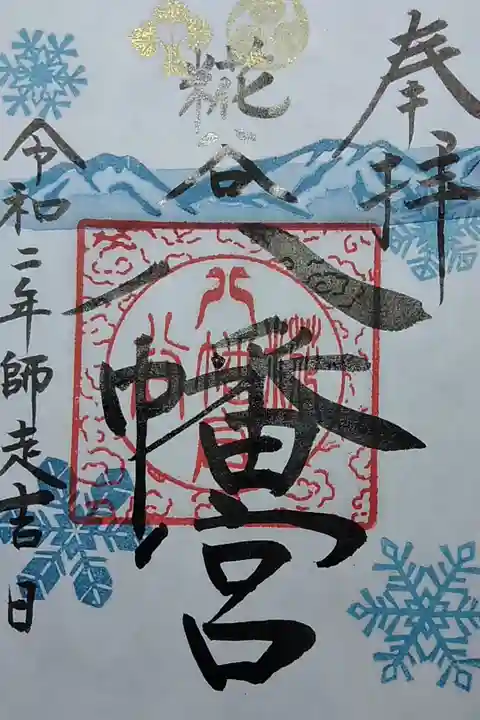 奉拝
糀谷
八幡宮
令和二年師走吉日